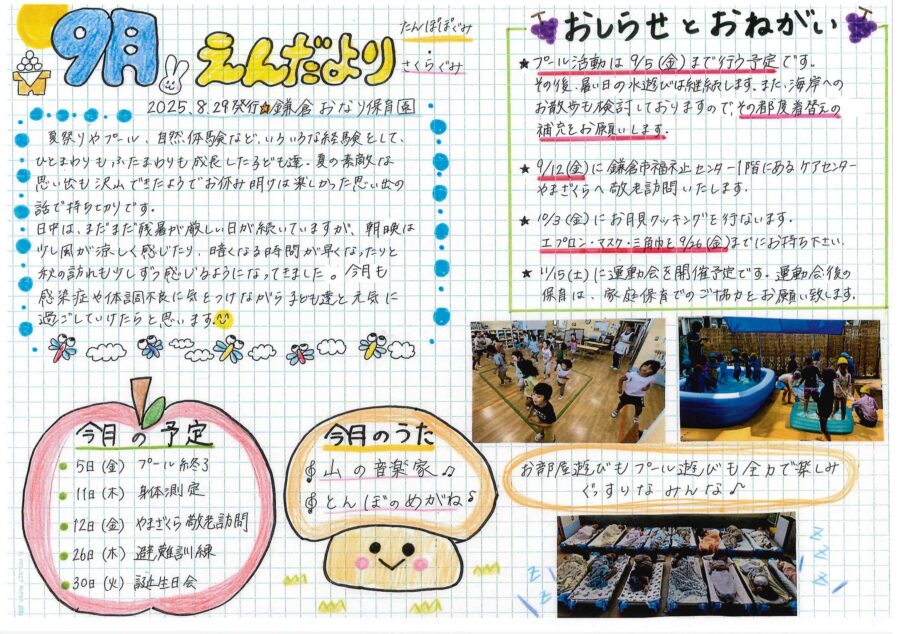 9月
えんだより
たんぽぽぐみ
・
さくらぐみ
2025.8.29発行☆鎌倉おなり保育園
夏祭りやプール、自然体験など、いろいろな経験をして、
ひとまわりもふたまわりも成長した子ども達。夏の素敵な
思い出も沢山できたようでお休み明けは楽しかった思い出の
話で持ちきりです。
日中は、まだまだ残暑が厳しい日が続いていますが、朝晩は
少し風が涼しく感じたり、暗くなる時間が早くなったりと
秋の訪れも少しずつ感じるようになってきました。今月も
感染症や体調不良に気をつけながら子ども達と元気に
過ごしていけたらと思います。
おしらせとおねがい
★プール活動は9/5(金)まで行う予定です。
その後、暑い日の水遊びは継続します。また、海岸への
お散歩も検討しておりますので、その都度着替えの
補充をお願いします。
★9/12(金)に鎌倉市福祉センター1階にあるケアセンター
やまざくらへ敬老訪問いたします。
★10/3(金)にお月見クッキングを行ないます。
エプロン・マスク・三角巾を9/26(金)までにお持ち下さい。
★11/15(土)に運動会を開催予定です。運動会後の
保育は、家庭保育でのご協力をお願い致します。
今月の予定
5日(金) プール終了
11日(木) 身体測定
12日(金) やまざくら敬老訪問
26日(木) 避難訓練
30日(火) 誕生日会
今月のうた
山の音楽家♫
とんぼのめがね♪
お部屋遊びもプール遊びも全力で楽しみ
ぐっすりなみんな♪
z
z
z
z
z